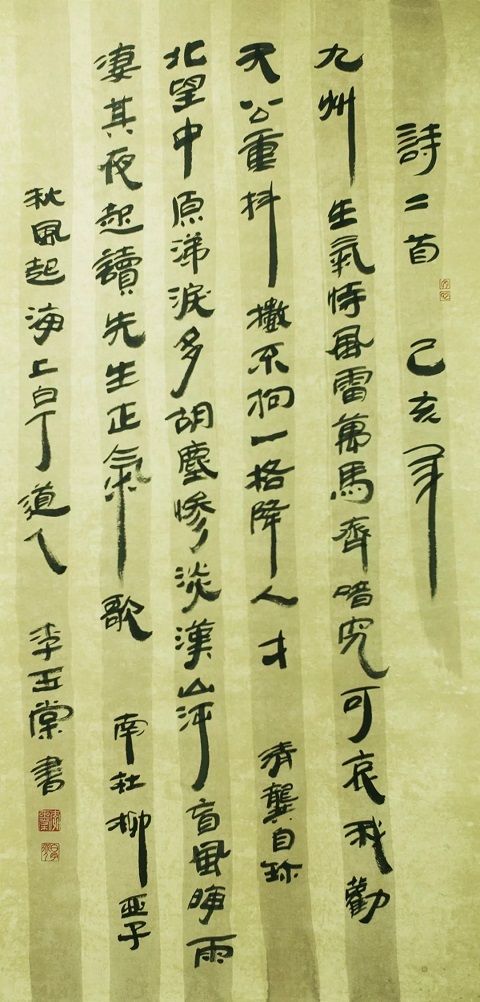 詩二首 己亥年
九州生氣恃風雷萬馬齊喑究可哀我勸
天公重抖擻不拘一格降人才 清龔自珍
北望中原涕淚多胡塵慘淡漢山河盲風晦雨
凄其夜起讀先生正氣歌 南社柳亞子
秋風起海上白丁道人 李玉棠書